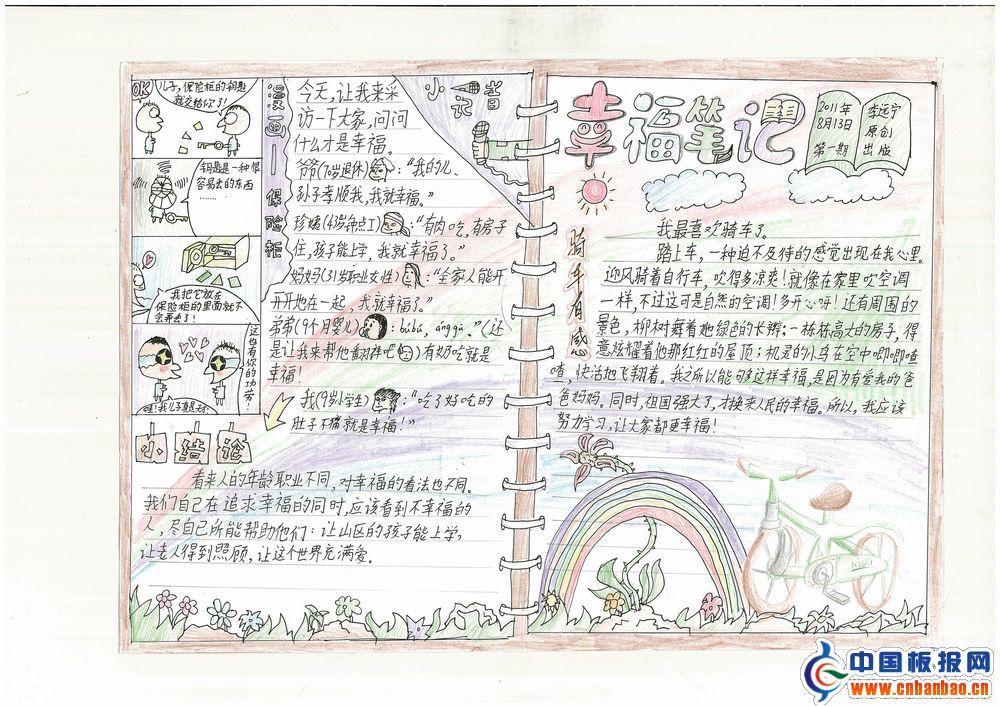 OK
儿子,保险柜的钥匙
就交给你了!
钥匙是一种很
容易丢的东西
……
我把它放在
保险柜的里面就不
会弄丢了!
这也有你的功劳!
哇!我儿子真是天才
漫画——保险柜
今天,让我来采
访一下大家,问问
什么才是幸福。
小记者
爷爷(70岁退休):“我的儿、
孙子孝顺我,我就幸福。”
珍姨(43岁钟点工):“有肉吃,有房子
住,孩子能上学,我就幸福了。”
妈妈(31岁职业女性):“全家人能开
开开地在一起,我就幸福了。”
弟弟(9个月婴儿):“búbú,ánggú。”(还
是让我来帮他翻译吧)有奶吃就是
幸福!
我(9岁小学生):“吃了好吃的
肚子不痛就是幸福!”
小结论
看来人的年龄职业不同,对幸福的看法也不同。
我们自己在追求幸福的同时,应该看到不幸福的
人,尽自己所能帮助他们:让山区的孩子能上学,
让老人得到照顾,让这个世界充满爱。
幸福笔记
2011年
8月13日
第一期
李远宁
原创
出版
骑车有感
我最喜欢骑车了。
踏上车,一种迫不及待的感觉出现在我心里。
迎风骑着自行车,吹得多凉爽!就像在家里吹空调
一样,不过这可是自然的空调!多开心呀!还有周围的
景色,柳树舞着她绿色的长辫;一栋栋高大的房子,得
意炫耀着他那红红的屋顶;机灵的小鸟在空中唧唧喳
喳,快活地飞翔着。我之所以能够这样幸福,是因为有爱我的爸
爸妈妈。同时,祖国强大了,才换来人民的幸福。所以,我应该
努力学习,让大家都更幸福!
中国板报网
www.cnbanbao.cn